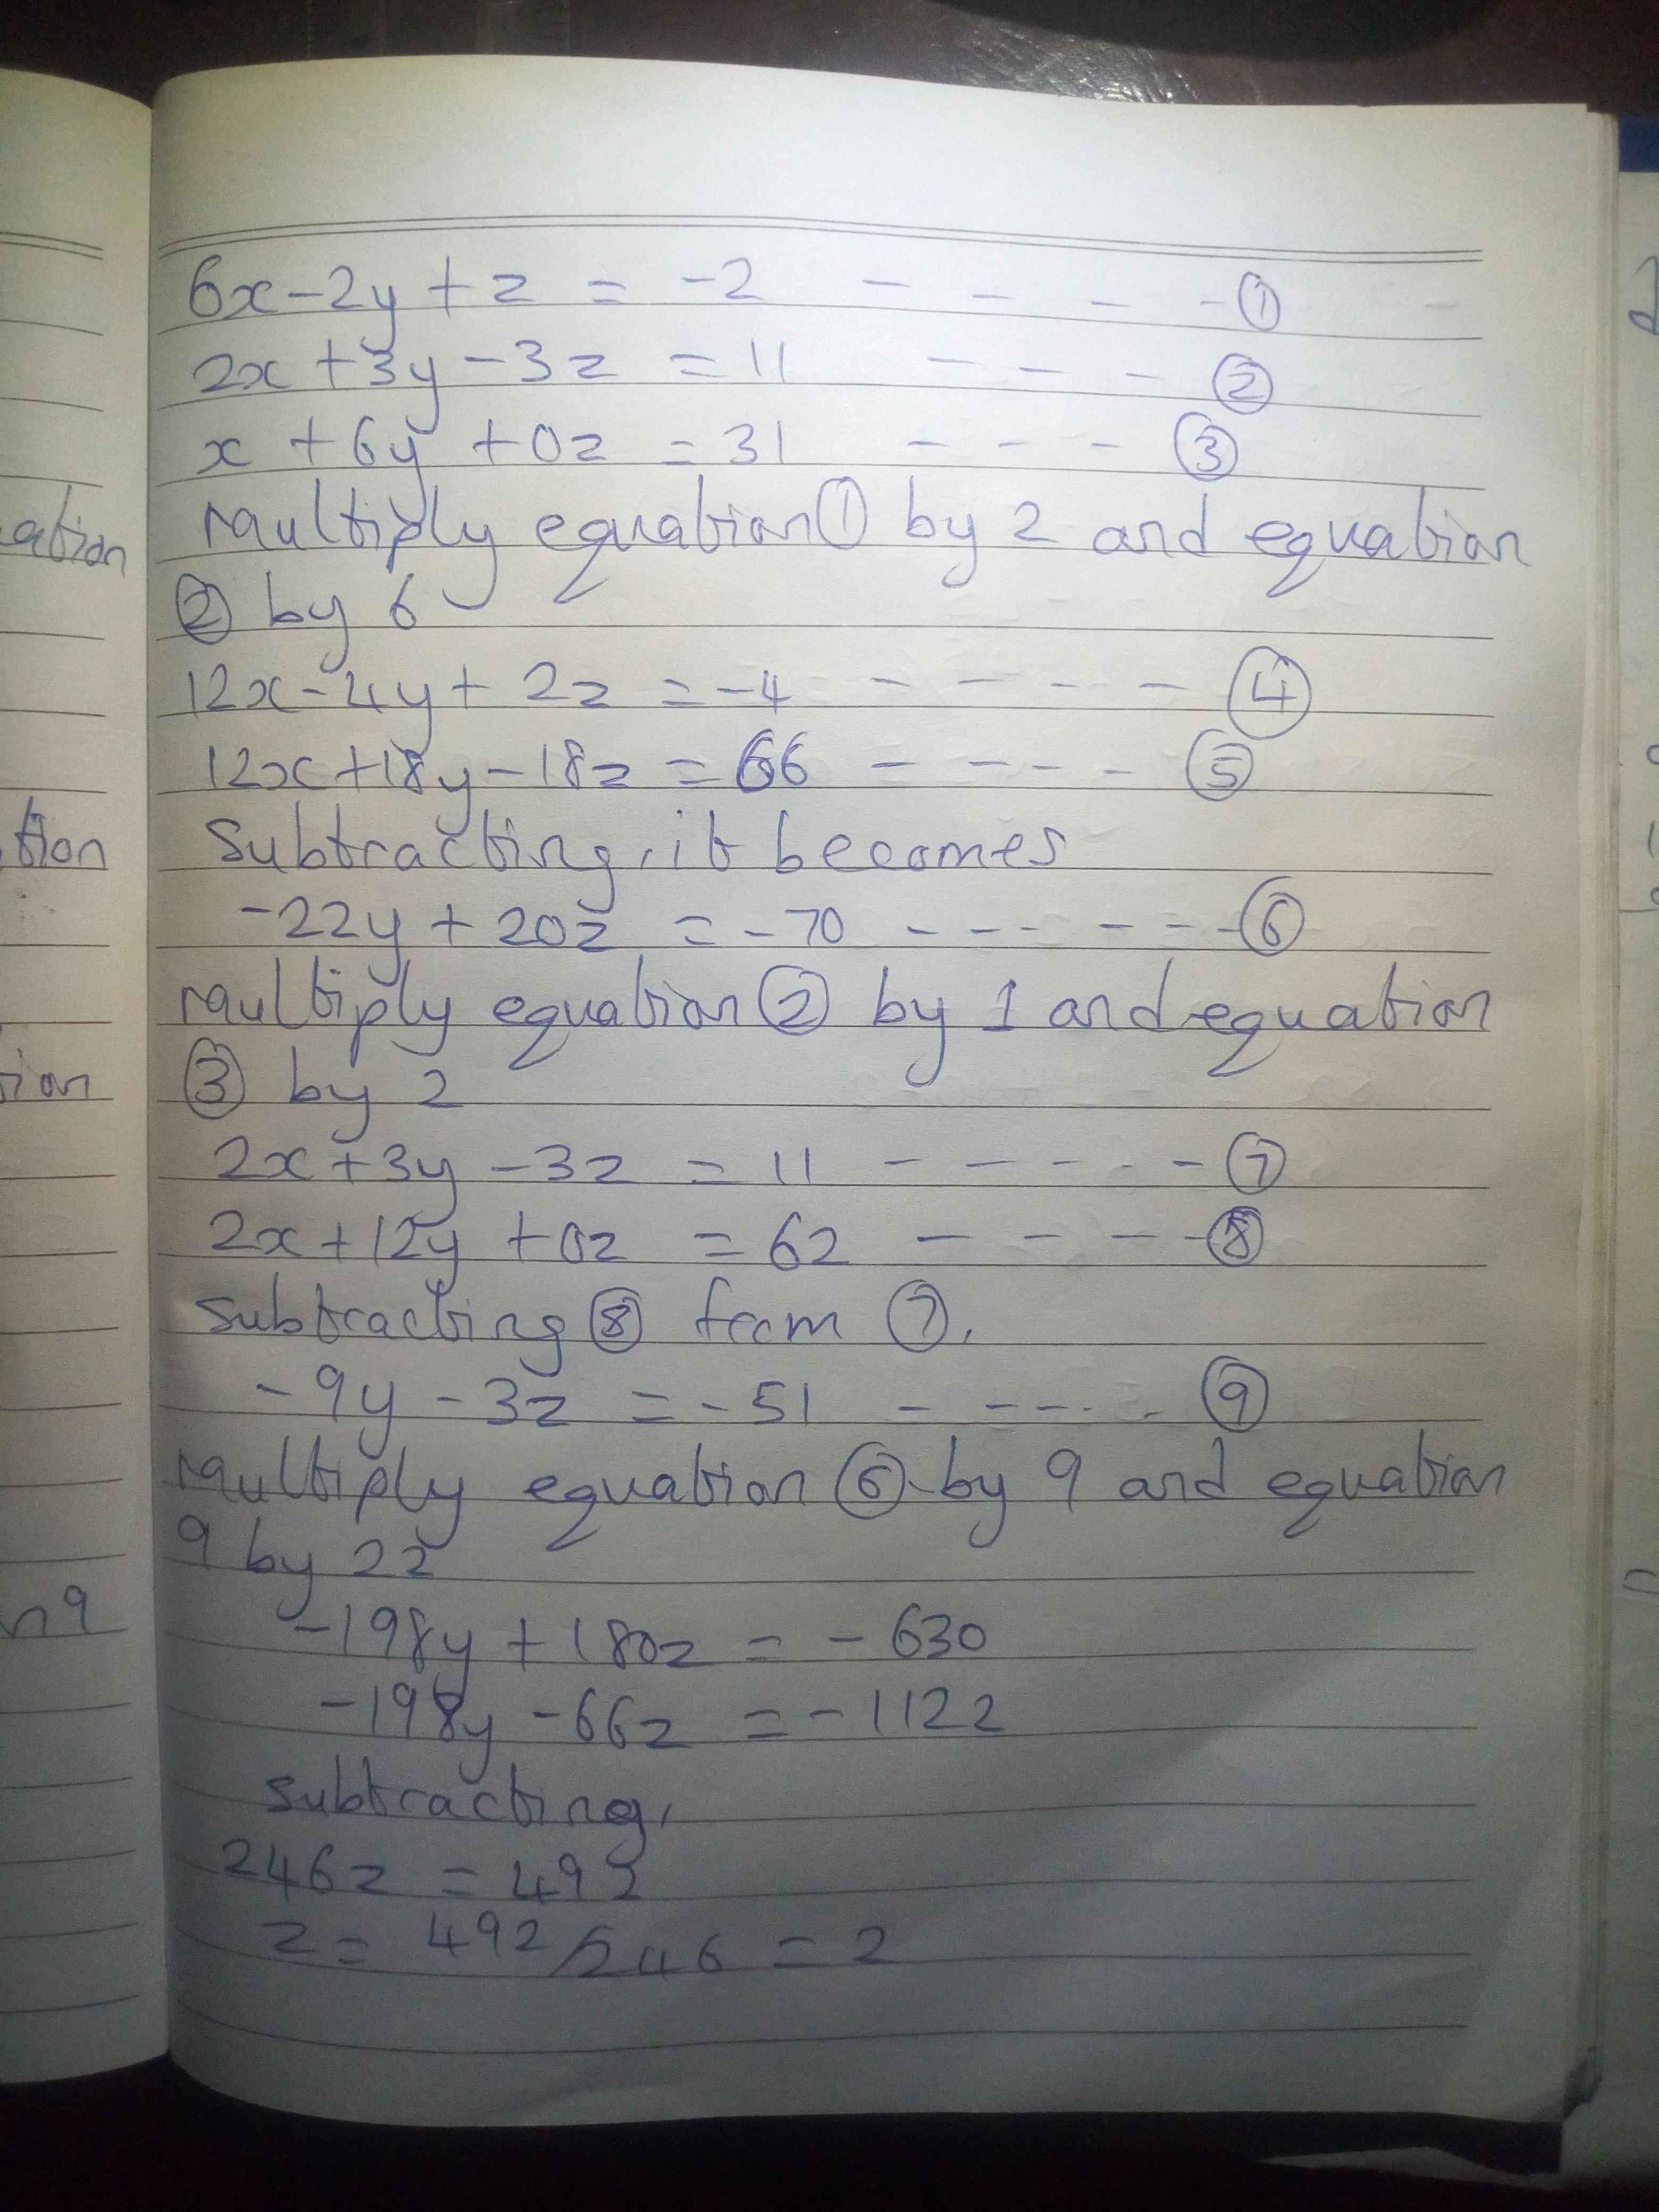 6x-2y+z = -2 - - - - ①
2x+3y-3z = 11 - - - ②
x +6y +0z = 31 - - - ③
multiply equation ① by 2 and equation
② by 6
12x-4y+2z = -4 - - - - ④
12x+18y-18z = 66 - - - - ⑤
Subtracting, it becomes
-22y + 20z = -70 - - - - - - ⑥
multiply equation ② by 1 and equation
③ by 2
2x+3y-3z = 11 - - - - - ⑦
2x+12y +0z = 62 - - - - ⑧
subtracting ⑧ from ⑦,
-9y-3z = -51 - - - - - ⑨
multiply equation ⑥ by 9 and equation
9 by 22
-198y + 180z = -630
-198y -66z = -1122
subtracting,
246z = 492
z = 492/246 = 2
ation
tion
ion
n9